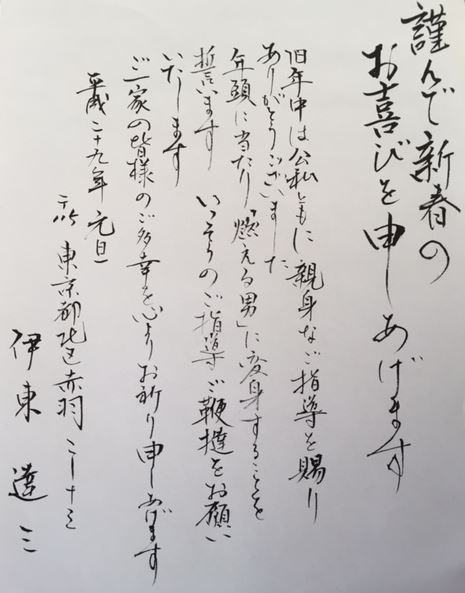 謹んで新春の
お喜びを申しあげます
旧年中は公私ともに親身なご指導を賜り
ありがとうございました
年頭に当たり「燃える男」に変身することを
誓います　いっそうのご指導ご鞭撻をお願い
いたします
ご一家の皆様のご多幸を心よりお祈り申しあげます
平成二十九年　元旦
東京都北区赤羽二ー十ー三
伊東　達三